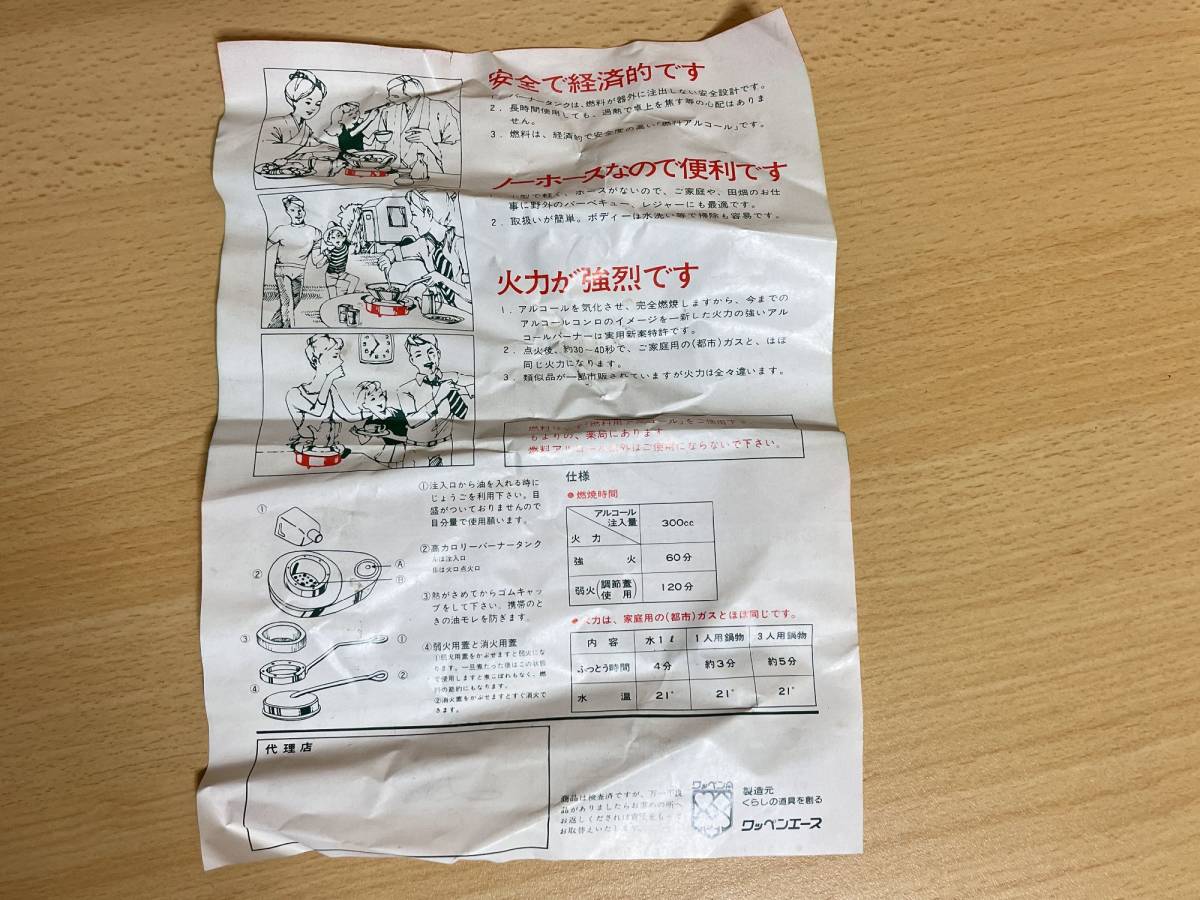 安全で経済的です
1. バーナータンクは、燃料が器外に注出しない安全設計です。
2. 長時間使用しても、過熱で卓上を焦す等の心配はありま
せん。
3. 燃料は、経済的で安全度の高い「燃料アルコール」です。
ノーホースなので便利です
ホースがないので、ご家庭や、田畑のお仕
事に野外のバーベキュー、レジャーにも最適です。
2. 取扱いが簡単。ボディーは水洗い等で掃除も容易です。
火力が強烈です
1. アルコールを気化させ、完全燃焼しますから、今までの
アルコールコンロのイメージを一新した火力の強いアル
コールバーナーは実用新案特許です。
2. 点火後、約30〜40秒で、ご家庭用の(都市)ガスと、ほぼ
同じ火力になります。
3. 類似品が一部市販されていますが火力は全々違います。
「燃料用アルコール」をご使用下
もよりの、薬局にあります
燃料アルコール以外はご使用にならないで下さい。
①注入口から油を入れる時に
じょうごを利用下さい。目
盛がついておりませんので
自分量で使用願います。
②高カロリーバーナータンク
Ⓐは注入口
Ⓑは火口点火口
③熱がさめてからゴムキャッ
プをして下さい。携帯のと
きの油モレを防ぎます。
④弱火用蓋と消火用蓋
①弱火用蓋をかぶせますと弱火にな
ります。一旦煮たった後はこの状態
で使用しますと煮こぼれもなく、燃
料の節約にもなります。
②消火蓋をかぶせますとすぐ消火で
きます。
①
②
Ⓐ
Ⓑ
③
①
②
④
仕様
●燃焼時間
アルコール注入量 火力 300cc
強火 60分
弱火(調節蓋使用) 120分
●火力は、家庭用の(都市)ガスとほぼ同じです。
内容 水1ℓ 1人用鍋物 3人用鍋物
ふっとう時間 4分 約3分 約5分
水温 21° 21° 21°
代理店
商品は検査済ですが、万一不良
品がありましたらお求めの所へ
お返しくだされば責任をもって
お取替えいたします。
ワッペンA
製造元
くらしの道具を創る
ワッペンエース